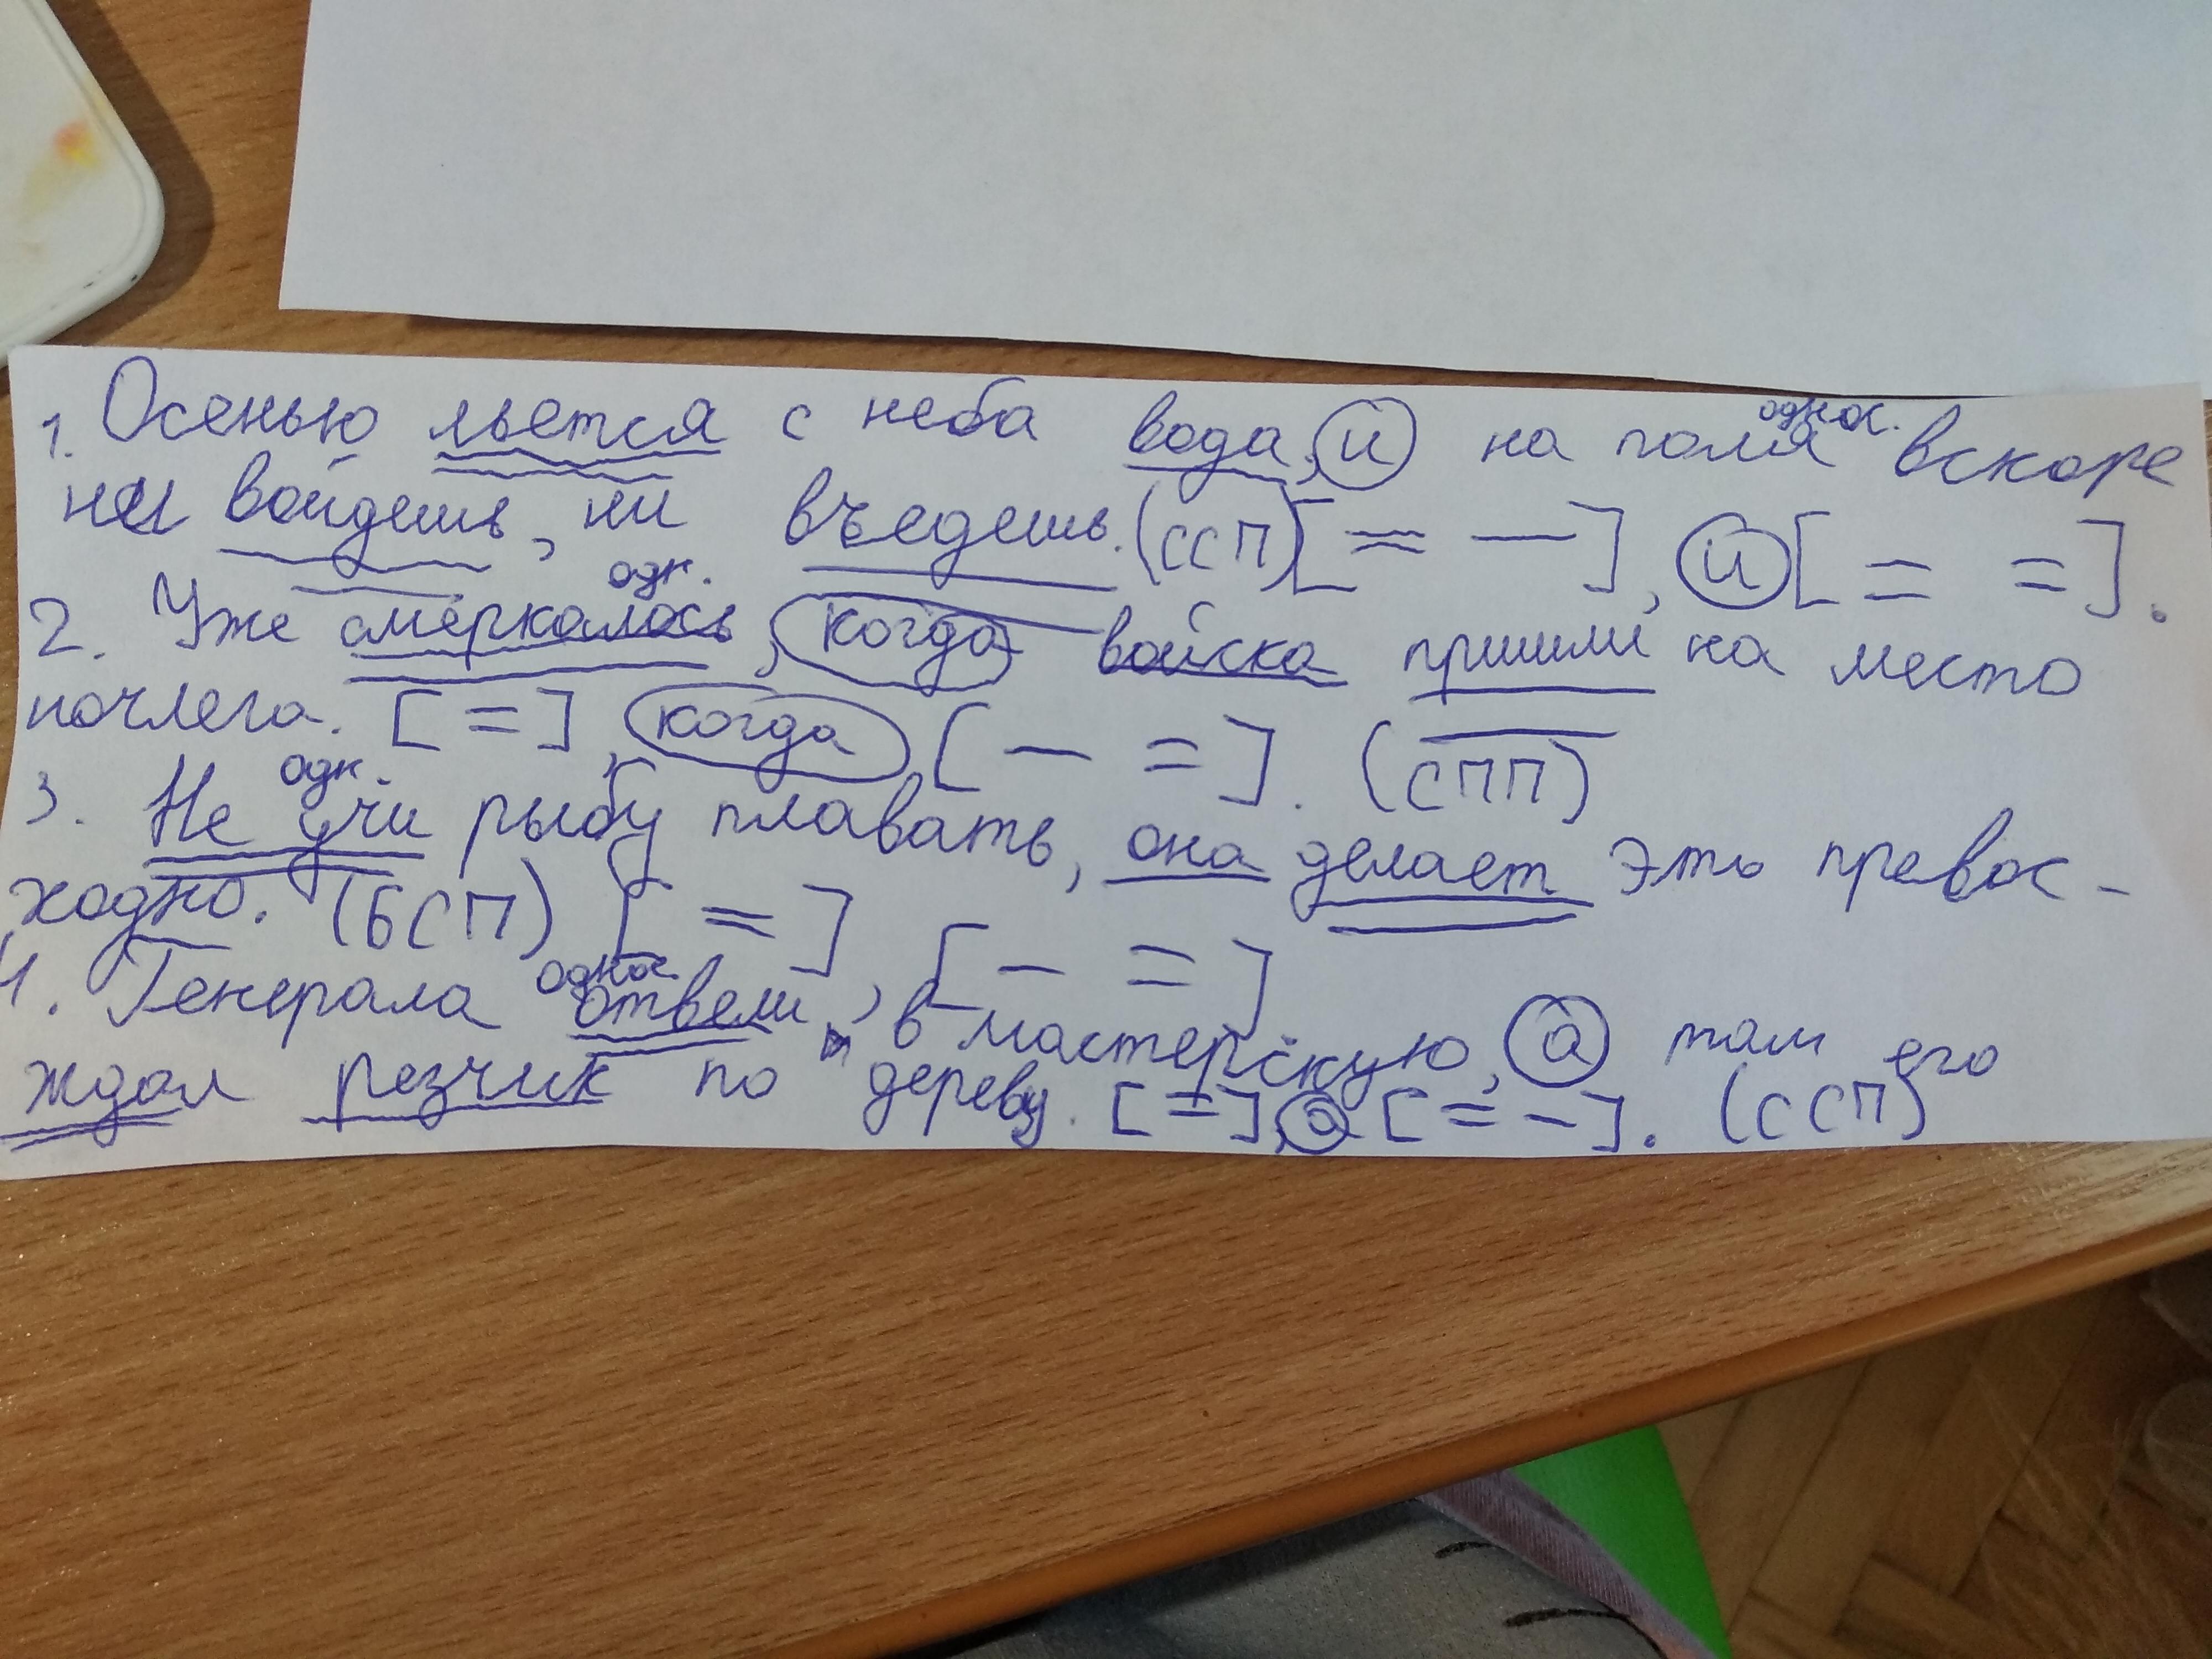 однос.
1. Осенью льется с неба вода, и на поля вскоре
ни войдешь, ни въедешь. (ССП) [= —], и [= =].
одн.
2. Уже смеркалось, когда войска пришли на место
ночлега. [=], когда [— =]. (СПП)
одн.
3. Не учи рыбу плавать, она делает это превос-
ходно. (БСП) [=], [— =]
однос
4. Генерала отвели в мастерскую, а там его
ждал резчик по дереву. [=], а [= —]. (ССП)